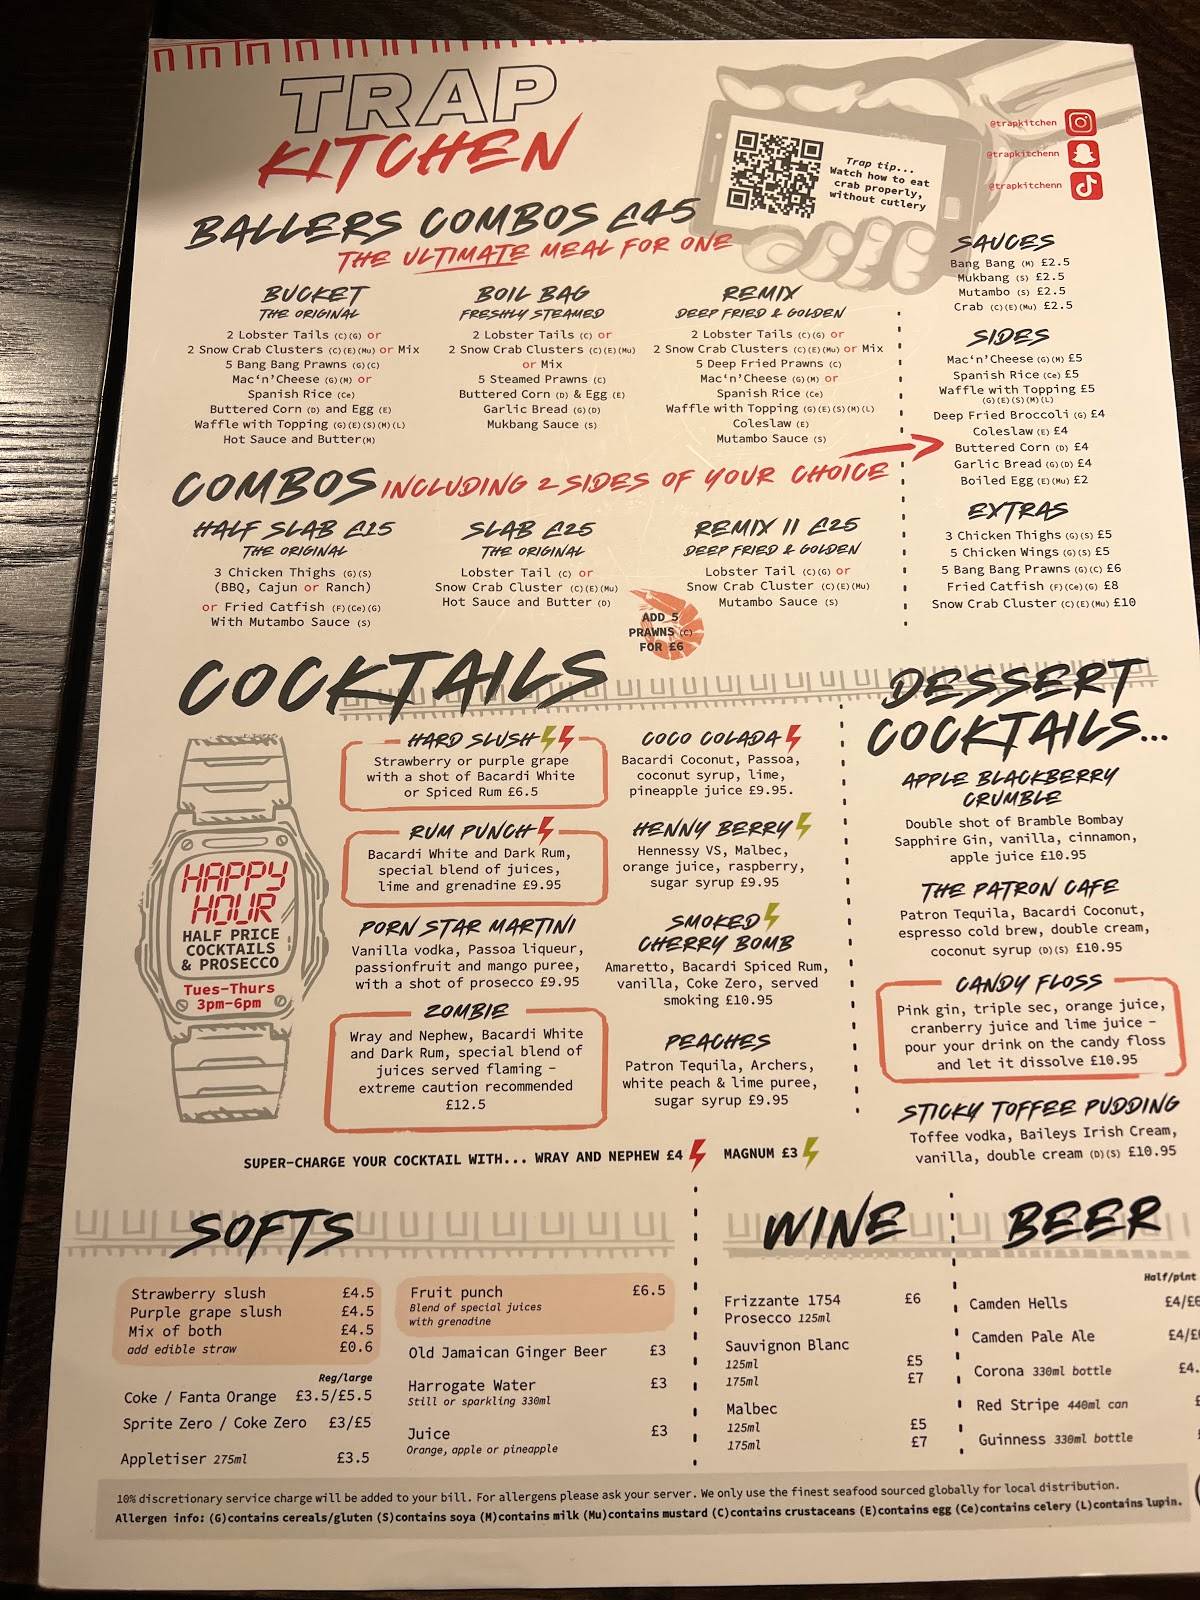 TRAP
KITCHEN
@trapkitchen
@trapkitchenn
@trapkitchenn
Trap tip...
Watch how to eat
crab properly,
without cutlery
BALLERS COMBOS £45
THE ULTIMATE MEAL FOR ONE
BUCKET
THE ORIGINAL
2 Lobster Tails (C)(G) or
2 Snow Crab Clusters (C)(E)(Mu) or Mix
5 Bang Bang Prawns (G)(C)
Mac'n'Cheese (G)(M) or
Spanish Rice (Ce)
Buttered Corn (D) and Egg (E)
Waffle with Topping (G)(E)(S)(M)(L)
Hot Sauce and Butter(M)
BOIL BAG
FRESHLY STEAMED
2 Lobster Tails (C) or
2 Snow Crab Clusters (C)(E)(Mu)
or Mix
5 Steamed Prawns (C)
Buttered Corn (D) & Egg (E)
Garlic Bread (G)(D)
Mukbang Sauce (S)
REMIX
DEEP FRIED & GOLDEN
2 Lobster Tails (C)(G) or
2 Snow Crab Clusters (C)(E)(Mu) or Mix
5 Deep Fried Prawns (C)
Mac'n'Cheese (G)(M) or
Spanish Rice (Ce)
Waffle with Topping (G)(E)(S)(M)(L)
Coleslaw (E)
Mutambo Sauce (S)
SAUCES
Bang Bang (M) £2.5
Mukbang (S) £2.5
Mutambo (S) £2.5
Crab (C)(E)(Mu) £2.5
SIDES
Mac'n'Cheese (G)(M) £5
Spanish Rice (Ce) £5
Waffle with Topping £5
(G)(E)(S)(M)(L)
Deep Fried Broccoli (G) £4
Coleslaw (E) £4
Buttered Corn (D) £4
Garlic Bread (G)(D) £4
Boiled Egg (E)(Mu) £2
EXTRAS
3 Chicken Thighs (G)(S) £5
5 Chicken Wings (G)(S) £5
5 Bang Bang Prawns (G)(C) £6
Fried Catfish (F)(Ce)(G) £8
Snow Crab Cluster (C)(E)(Mu) £10
COMBOS INCLUDING 2 SIDES OF YOUR CHOICE
HALF SLAB £15
THE ORIGINAL
3 Chicken Thighs (G)(S)
(BBQ, Cajun or Ranch)
or Fried Catfish (F)(Ce)(G)
With Mutambo Sauce (S)
SLAB £25
THE ORIGINAL
Lobster Tail (C) or
Snow Crab Cluster (C)(E)(Mu)
Hot Sauce and Butter (D)
REMIX II £25
DEEP FRIED & GOLDEN
Lobster Tail (C)(G) or
Snow Crab Cluster (C)(E)(Mu)
Mutambo Sauce (S)
ADD 5
PRAWNS (C)
FOR £6
COCKTAILS
HAPPY
HOUR
HALF PRICE
COCKTAILS
& PROSECCO
Tues-Thurs
3pm-6pm
HARD SLUSH
Strawberry or purple grape
with a shot of Bacardi White
or Spiced Rum £6.5
RUM PUNCH
Bacardi White and Dark Rum,
special blend of juices,
lime and grenadine £9.95
PORN STAR MARTINI
Vanilla vodka, Passoa liqueur,
passionfruit and mango puree,
with a shot of prosecco £9.95
ZOMBIE
Wray and Nephew, Bacardi White
and Dark Rum, special blend of
juices served flaming -
extreme caution recommended
£12.5
COCO COLADA
Bacardi Coconut, Passoa,
coconut syrup, lime,
pineapple juice £9.95.
HENNY BERRY
Hennessy VS, Malbec,
orange juice, raspberry,
sugar syrup £9.95
SMOKED
CHERRY BOMB
Amaretto, Bacardi Spiced Rum,
vanilla, Coke Zero, served
smoking £10.95
PEACHES
Patron Tequila, Archers,
white peach & lime puree,
sugar syrup £9.95
SUPER-CHARGE YOUR COCKTAIL WITH... WRAY AND NEPHEW £4 MAGNUM £3
DESSERT
COCKTAILS...
APPLE BLACKBERRY
CRUMBLE
Double shot of Bramble Bombay
Sapphire Gin, vanilla, cinnamon,
apple juice £10.95
THE PATRON CAFE
Patron Tequila, Bacardi Coconut,
espresso cold brew, double cream,
coconut syrup (D)(S) £10.95
CANDY FLOSS
Pink gin, triple sec, orange juice,
cranberry juice and lime juice -
pour your drink on the candy floss
and let it dissolve £10.95
STICKY TOFFEE PUDDING
Toffee vodka, Baileys Irish Cream,
vanilla, double cream (D)(S) £10.95
SOFTS
Strawberry slush £4.5
Purple grape slush £4.5
Mix of both £4.5
add edible straw £0.6
Reg/large
Coke / Fanta Orange £3.5/£5.5
Sprite Zero / Coke Zero £3/£5
Appletiser 275ml £3.5
Fruit punch £6.5
Blend of special juices
with grenadine
Old Jamaican Ginger Beer £3
Harrogate Water £3
Still or sparkling 330ml
Juice £3
Orange, apple or pineapple
WINE
Frizzante 1754 £6
Prosecco 125ml
Sauvignon Blanc
125ml £5
175ml £7
Malbec
125ml £5
175ml £7
BEER
Half/pint
Camden Hells £4/£6
Camden Pale Ale £4/£
Corona 330ml bottle £4.
Red Stripe 440ml can
Guinness 330ml bottle
10% discretionary service charge will be added to your bill. For allergens please ask your server. We only use the finest seafood sourced globally for local distribution.
Allergen info: (G)contains cereals/gluten (S)contains soya (M)contains milk (Mu)contains mustard (C)contains crustaceans (E)contains egg (Ce)contains celery (L)contains lupin.